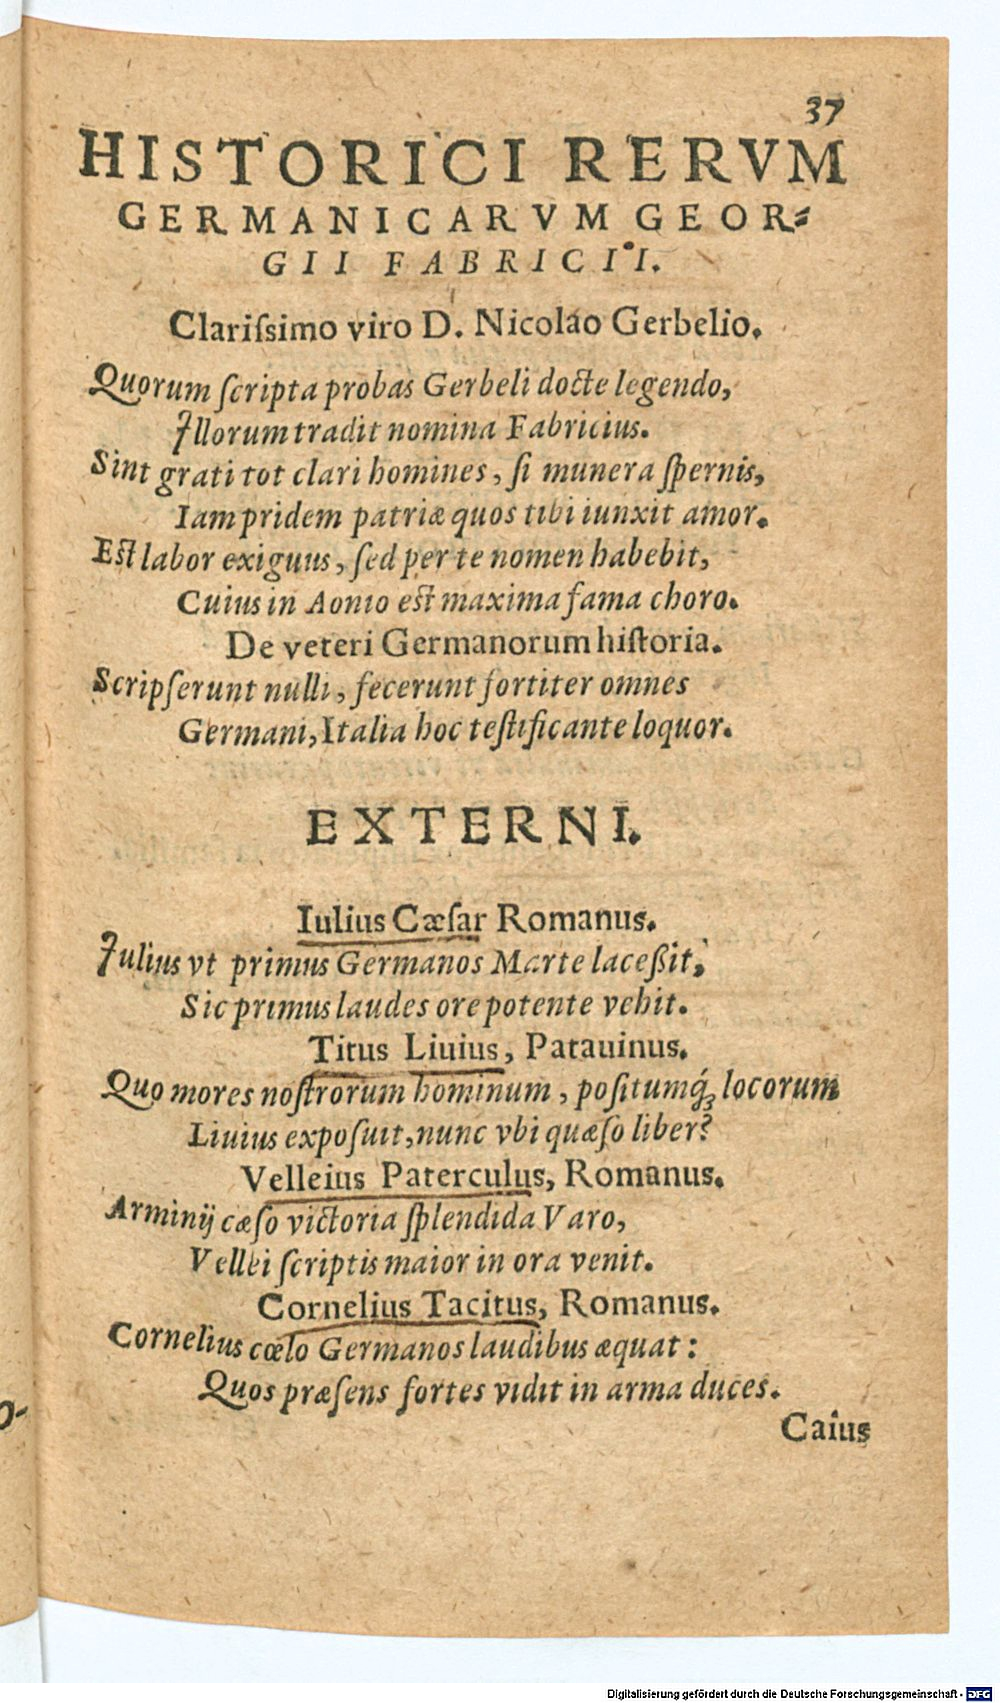 37
HISTORICI RERVM
GERMANICARVM GEOR-
GII FABRICII.
Clariſsimo viro D. Nicolao Gerbelio.
Quorum ſcripta probas Gerbeli docte legendo,
Illorum tradit nomina Fabricius.
Sint grati tot clari homines, ſi munera ſpernis,
Iampridem patriæ quos tibi iunxit amor.
Est labor exiguus, ſed per te nomen habebit,
Cuius in Aonio est maxima fama choro.
De veteri Germanorum hiſtoria.
Scripſerunt nulli, fecerunt fortiter omnes
Germani, Italia hoc teſtificante loquor.
EXTERNI.
Iulius Cæſar Romanus.
Iulius vt primus Germanos Marte laceßit,
Sic primus laudes ore potente vehit.
Titus Liuius, Patauinus.
Quo mores noſtrorum hominum, poſitumq́ꝫ locorum
Liuius expoſuit, nunc vbi quæſo liber?
Velleius Paterculus, Romanus.
Arminij cæſo victoria ſplendida Varo,
Vellei ſcriptis maior in ora venit.
Cornelius Tacitus, Romanus.
Cornelius cœlo Germanos laudibus æquat:
Quos præſens fortes vidit in arma duces.
Caius
Digitalisierung gefördert durch die Deutsche Forschungsgemeinschaft - DFG